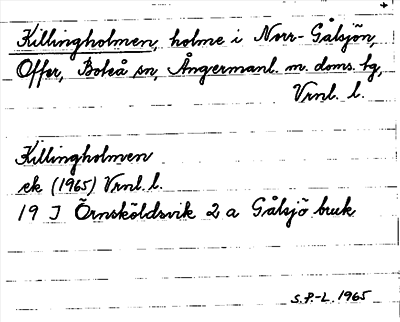 Killingholmen, holme i Norr-Gålsjön,
Offer, Boteå sn, Ångermanl. m. doms. hg,
Vrnl. l.
Killingholmen
ek (1965) Vrnl. l.
19 J Örnsköldsvik 2 a Gålsjö bruk
S.P.-L. 1965